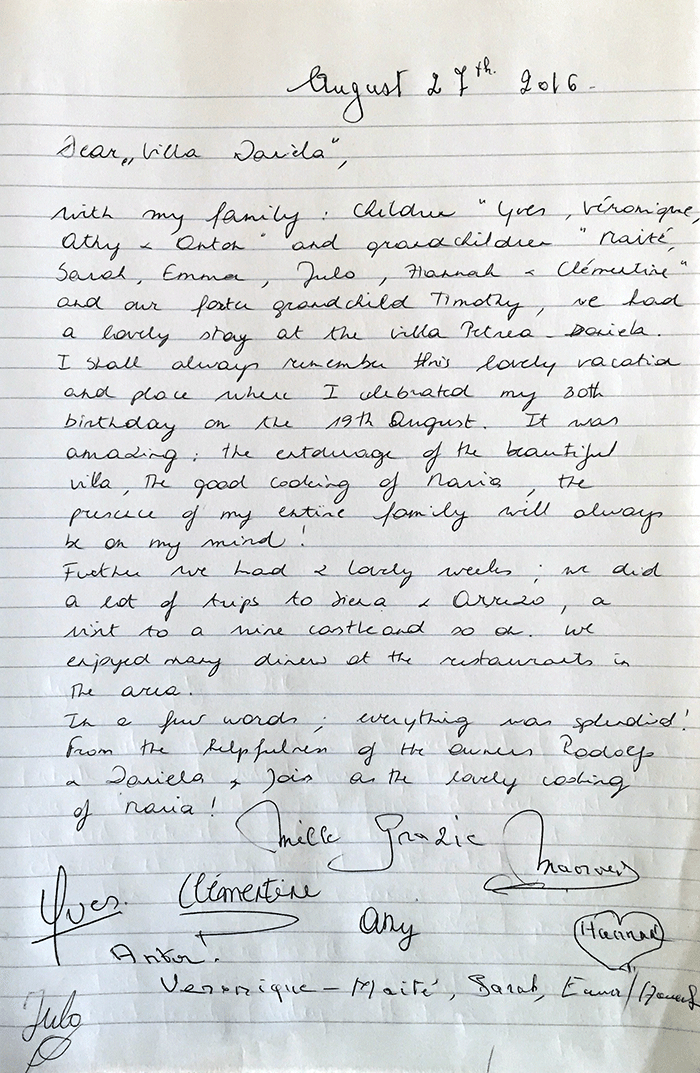 August 27th. 2016.
Dear „Villa Daniela",
With my family: children "Yves, Véronique,
Athy & Anton" and grandchildren "Maité,
Sarah, Emma, Julo, Hannah & Clémentine"
and our foster grandchild Timothy, we had
a lovely stay at the Villa Petrea - Daniela.
I shall always remember this lovely vacation
and place where I celebrated my 30th
birthday on the 19th August. It was
amazing; the entourage of the beautiful
villa, the good cooking of Maria, the
presence of my entire family will always
be on my mind!
Further we had 2 lovely weeks; we did
a lot of trips to Siena & Arrezo, a
visit to a wine castle and so on. We
enjoyed many diners at the restaurants in
the area.
In a few words; everything was splendid!
From the helpfulness of the owners Rodolf
& Daniela & Jois as the lovely cooking
of Maria!
Mille Grazie
Yves. Clémentine
Any Hannah
Anton.
Veronique - Maité, Sarah, Emma/
Julo